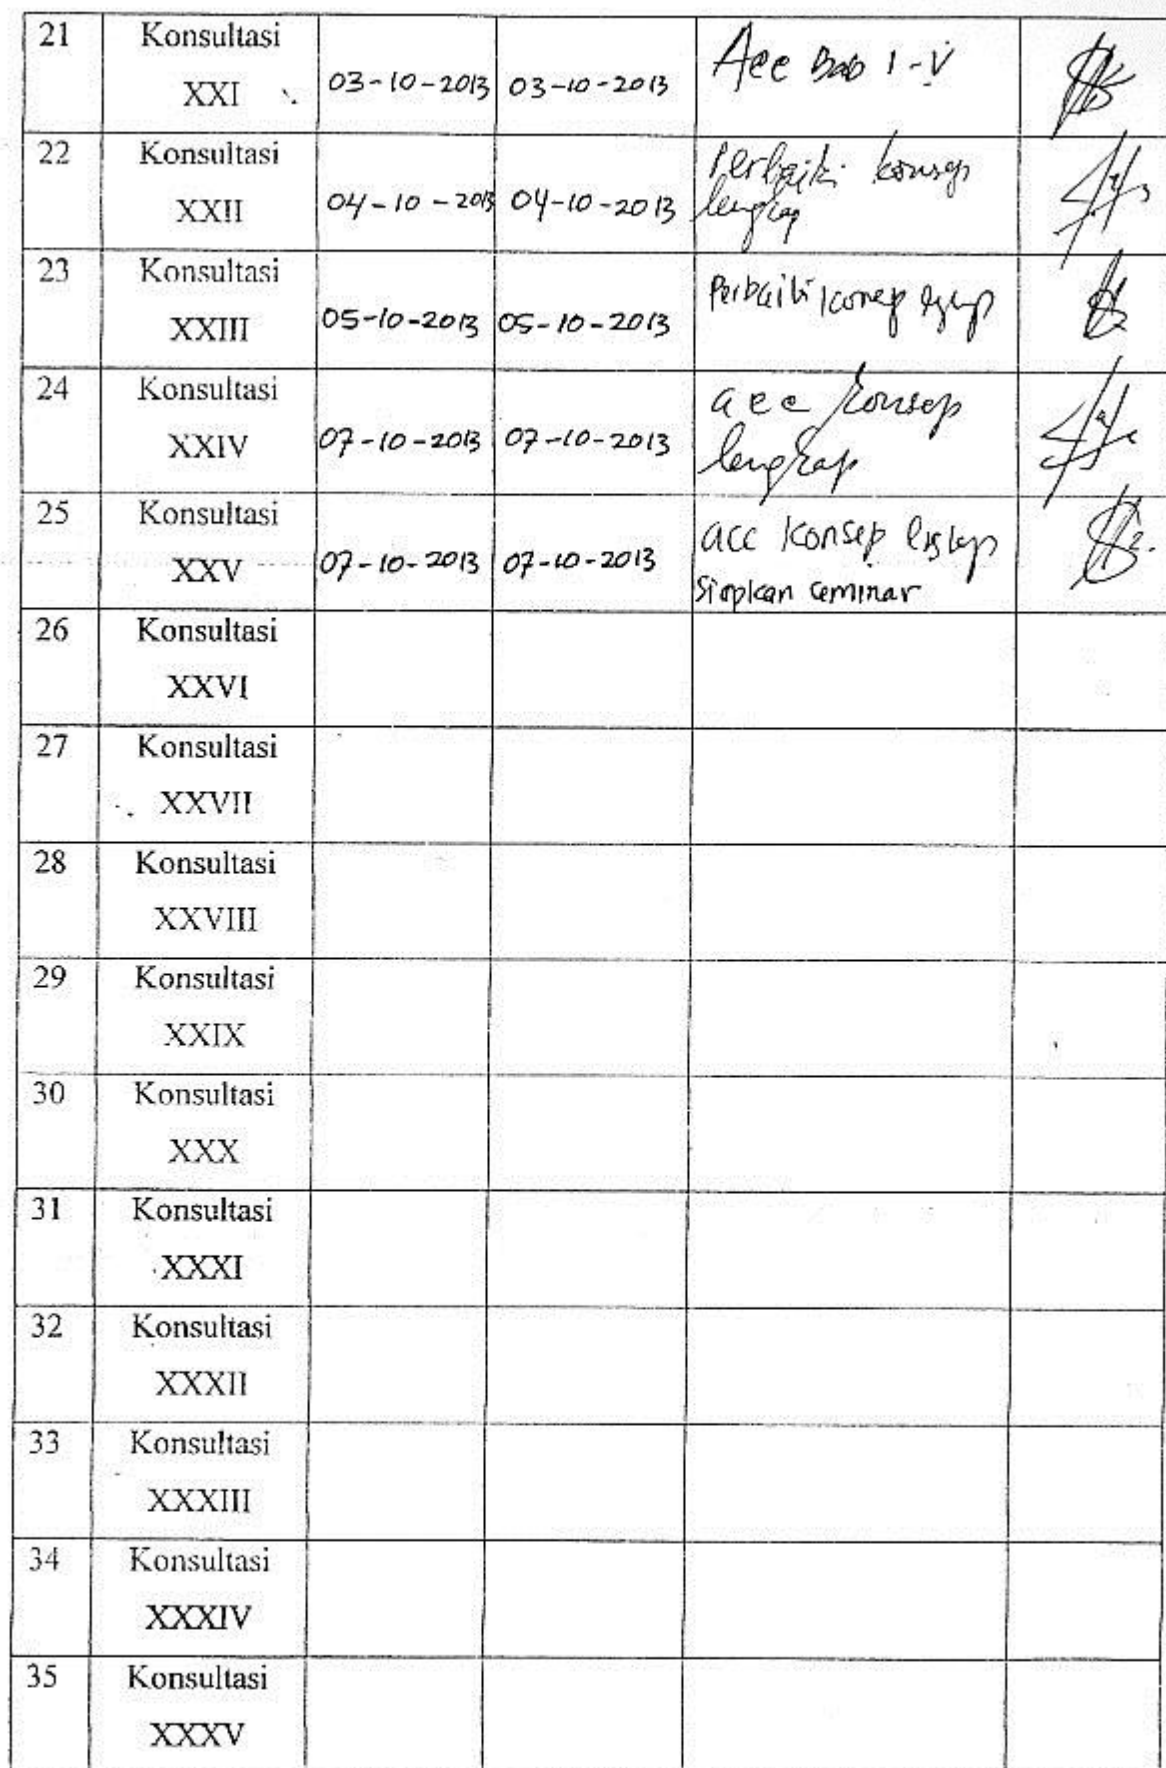 21 Konsultasi XXI 03-10-2013 03-10-2013 Acc Bab I-V
22 Konsultasi XXII 04-10-2013 04-10-2013 Perbaiki konsep
lengkap
23 Konsultasi XXIII 05-10-2013 05-10-2013 Perbaiki konsep
24 Konsultasi XXIV 07-10-2013 07-10-2013 acc konsep
lengkap
25 Konsultasi XXV 07-10-2013 07-10-2013 acc konsep
Siapkan seminar
26 Konsultasi
XXVI
27 Konsultasi
XXVII
28 Konsultasi
XXVIII
29 Konsultasi
XXIX
30 Konsultasi
XXX
31 Konsultasi
XXXI
32 Konsultasi
XXXII
33 Konsultasi
XXXIII
34 Konsultasi
XXXIV
35 Konsultasi
XXXV